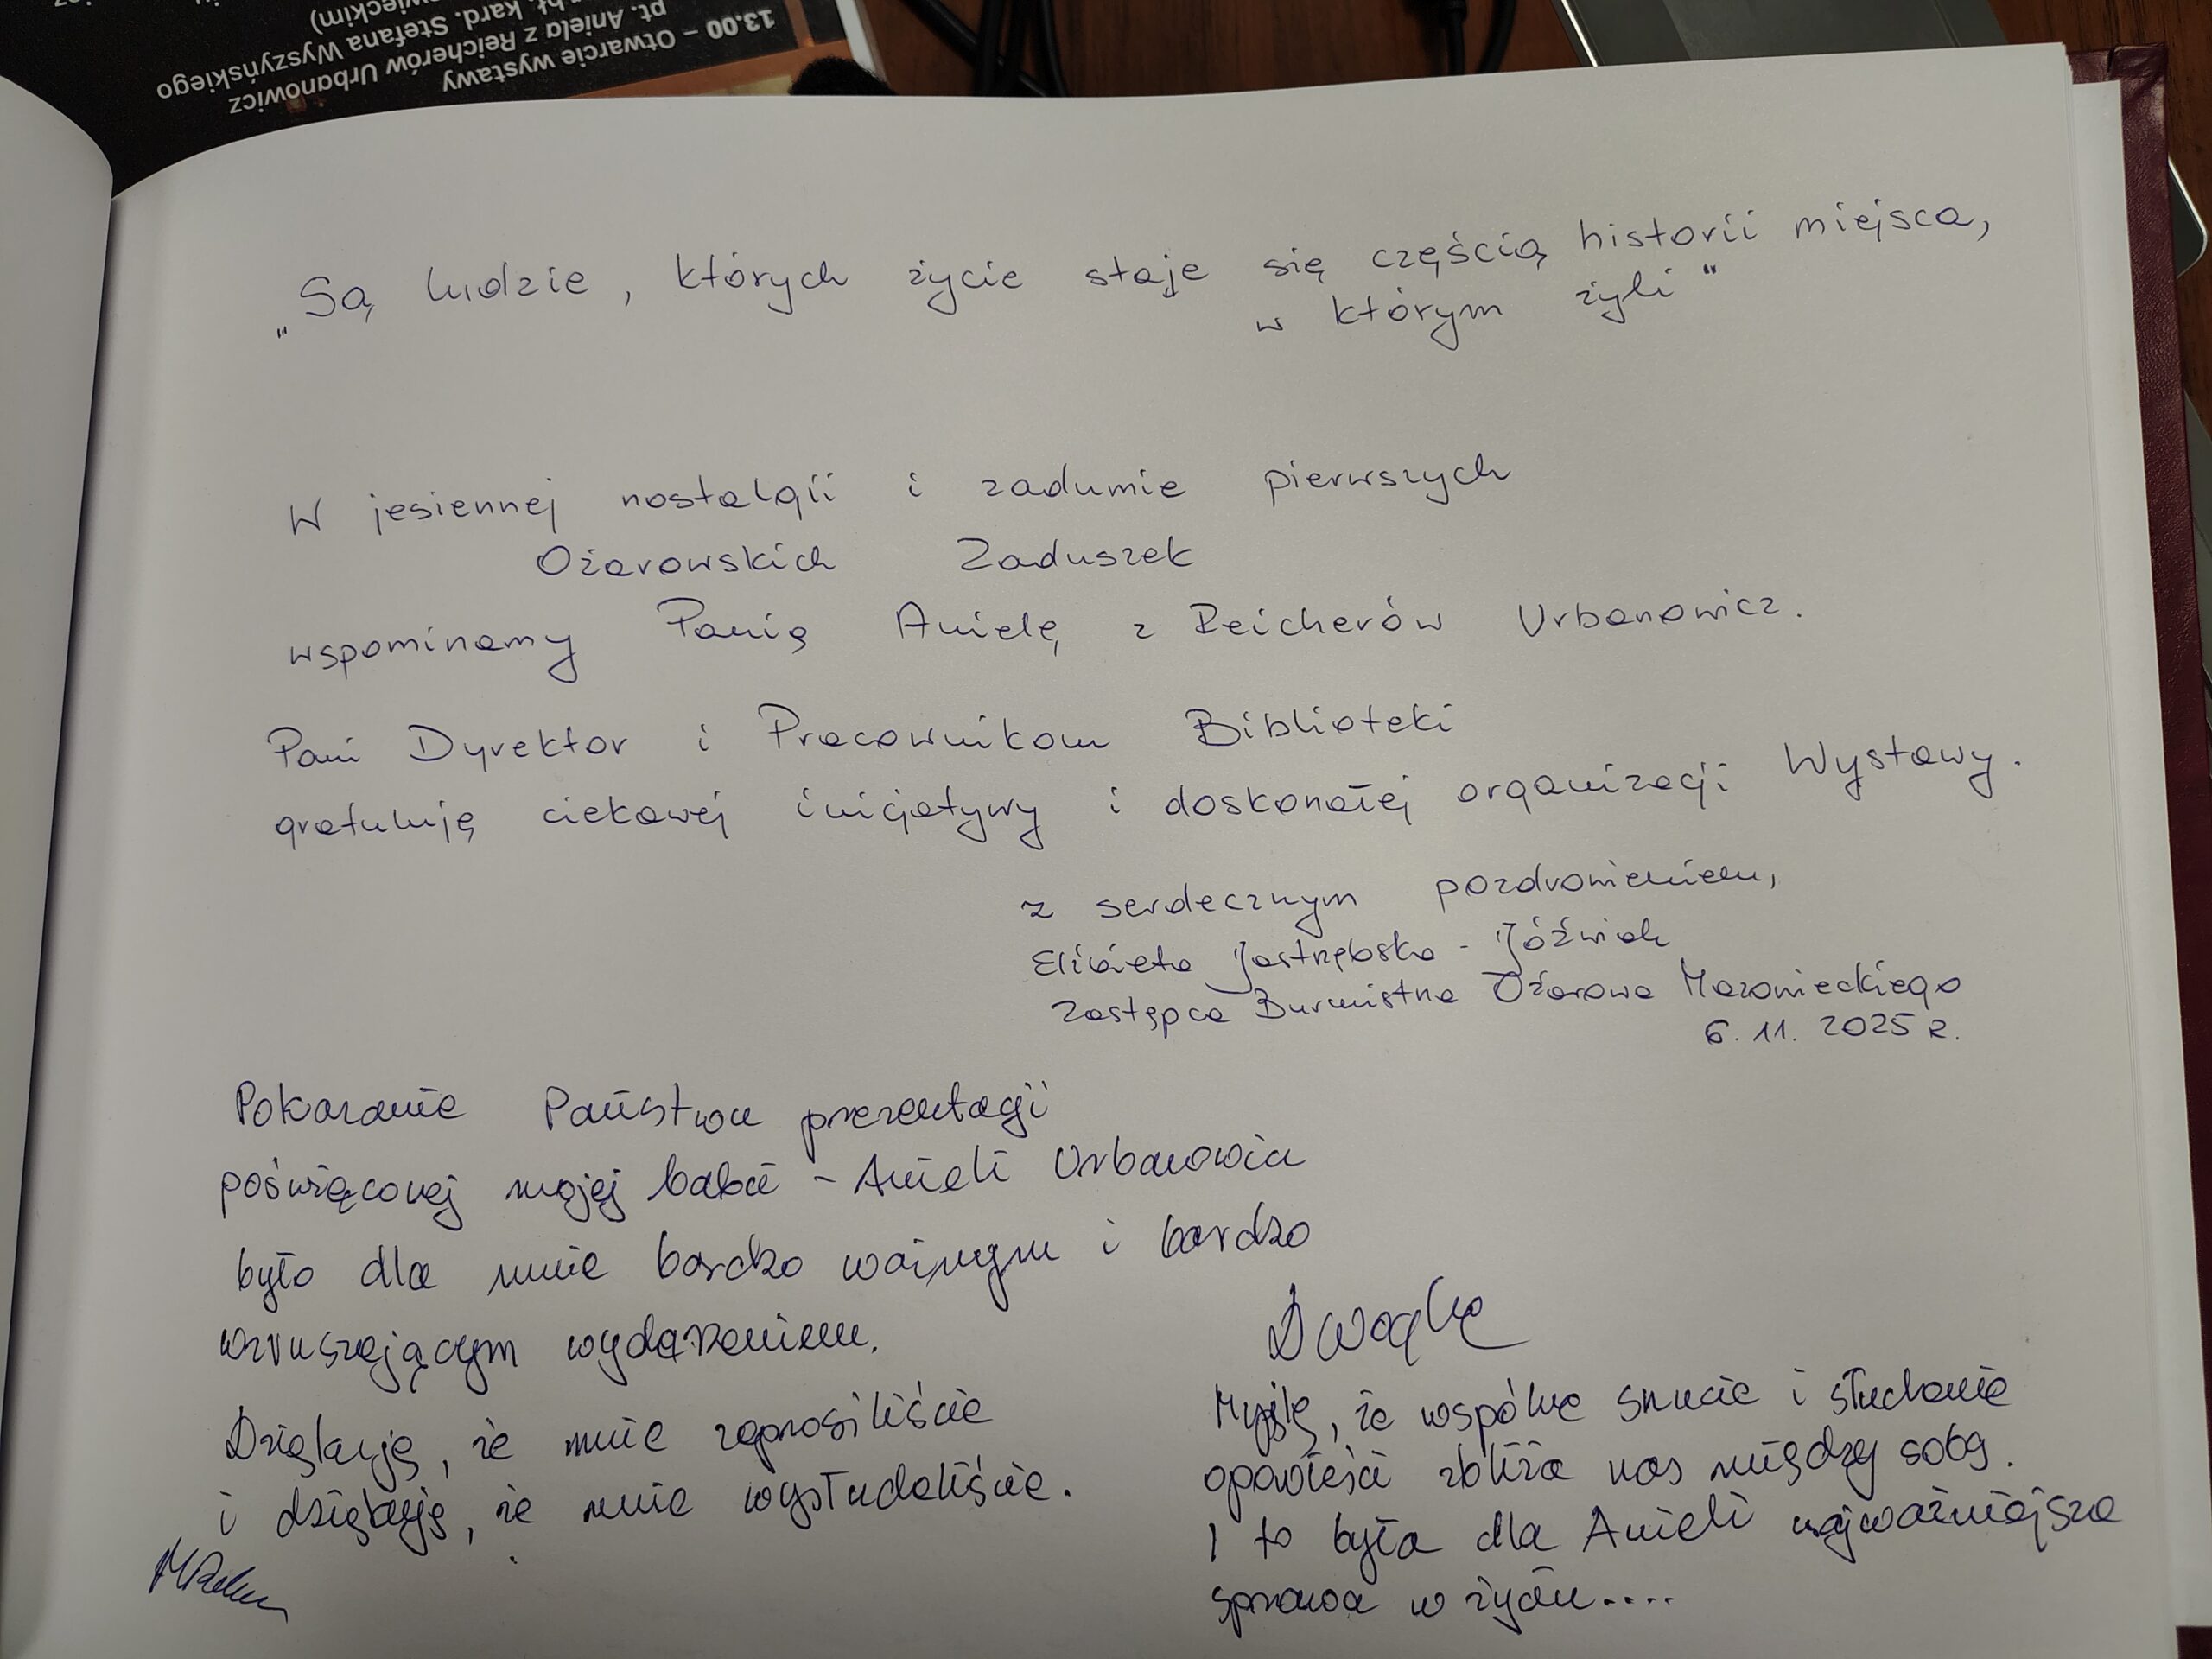 13.00 – Otwarcie wystawy
pt. Aniela z Reicherów Urbanowicz
kard. Stefana Wyszyńskiego
„Są ludzie, których życie staje się częścią historii miejsca,
w którym żyli"
W jesiennej nostalgii i zadumie pierwszych
Ożarowskich Zaduszek
wspominamy Panią Anielę z Reicherów Urbanowicz.
Pani Dyrektor i Pracownikom Biblioteki
gratuluję ciekawej inicjatywy i doskonałej organizacji Wystawy.
z serdecznym pozdrowieniem,
Elżbieta Jastrzębska - Jóźwiak
Zastępca Burmistrza Ożarowa Mazowieckiego
6. 11. 2025 R.
Pokazanie Państwu prezentacji
poświęconej mojej babci - Anieli Urbanowicz
było dla mnie bardzo ważnym i bardzo
wzruszającym wydarzeniem.
Dziękuję, że mnie zaprosiliście
i dziękuję, że mnie wysłuchaliście.
Myślę, że wspólne snucie i słuchanie
opowieści zbliża nas między sobą.
I to była dla Anieli najważniejsza
sprawa w życiu....